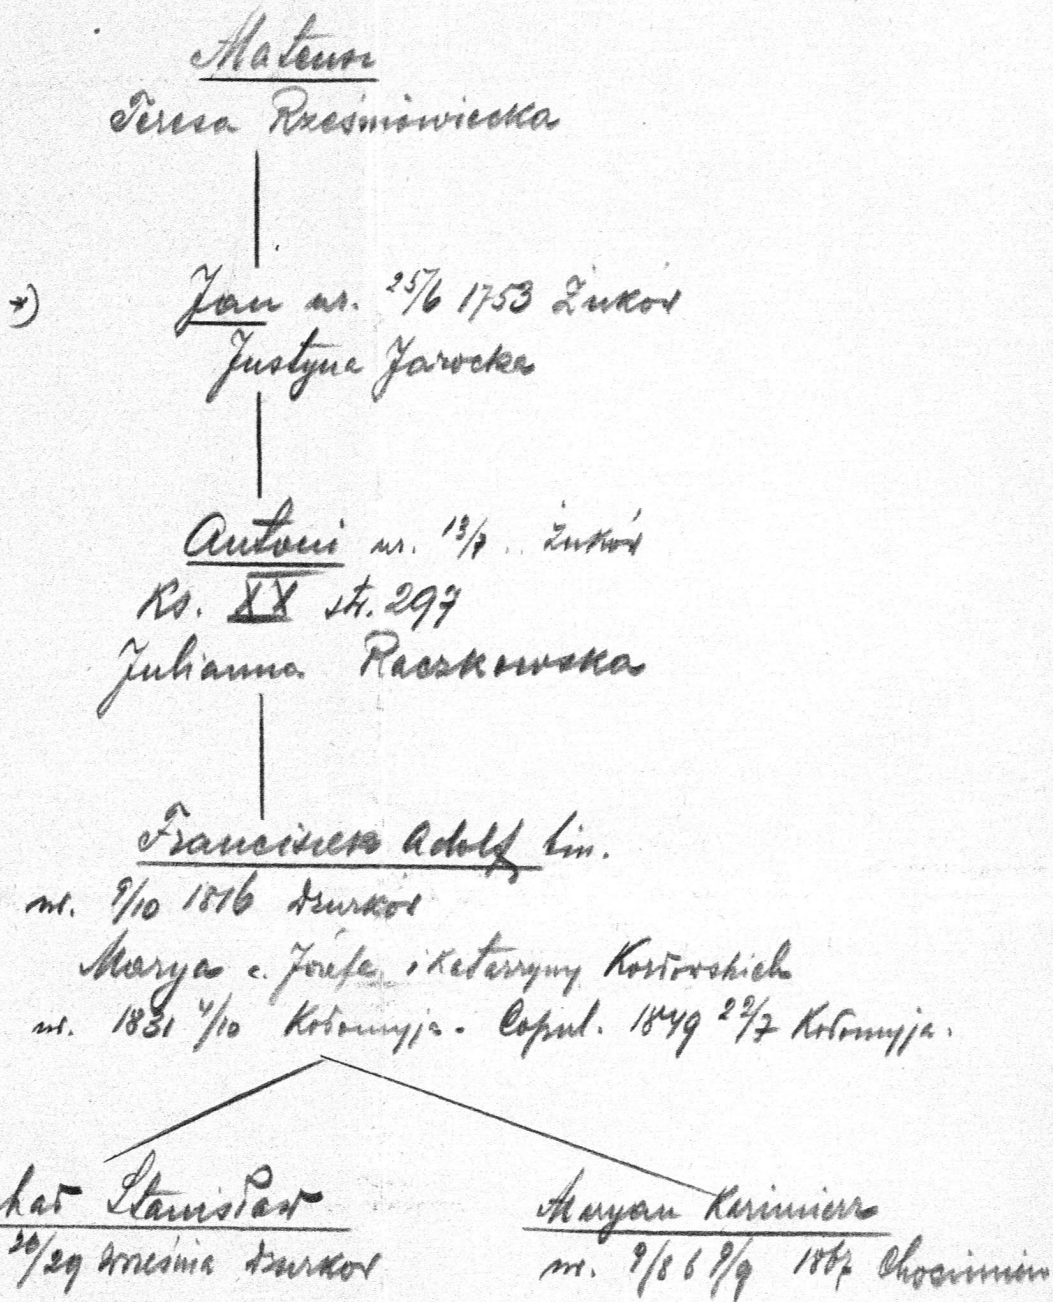 Mateusz
Teresa Rześniowiecka
*) Jan ur. 25/6 1753 Żuków
Justyna Jarocka
Antoni ur. 13/7 Żuków
Ks. XX str. 297
Julianna Raczkowska
Franciszek Adolf bin.
ur. 9/10 1816 Dzurków
Marya c. Józefa i Katarzyny Kozłowskich
ur. 1831 4/10 Kołomyja. Copul. 1849 22/7 Kołomyja.
Stanisław Maryan Kazimierz
/29 września Dzurków ur. 9/8 b 9/9 1867 Chocimierz